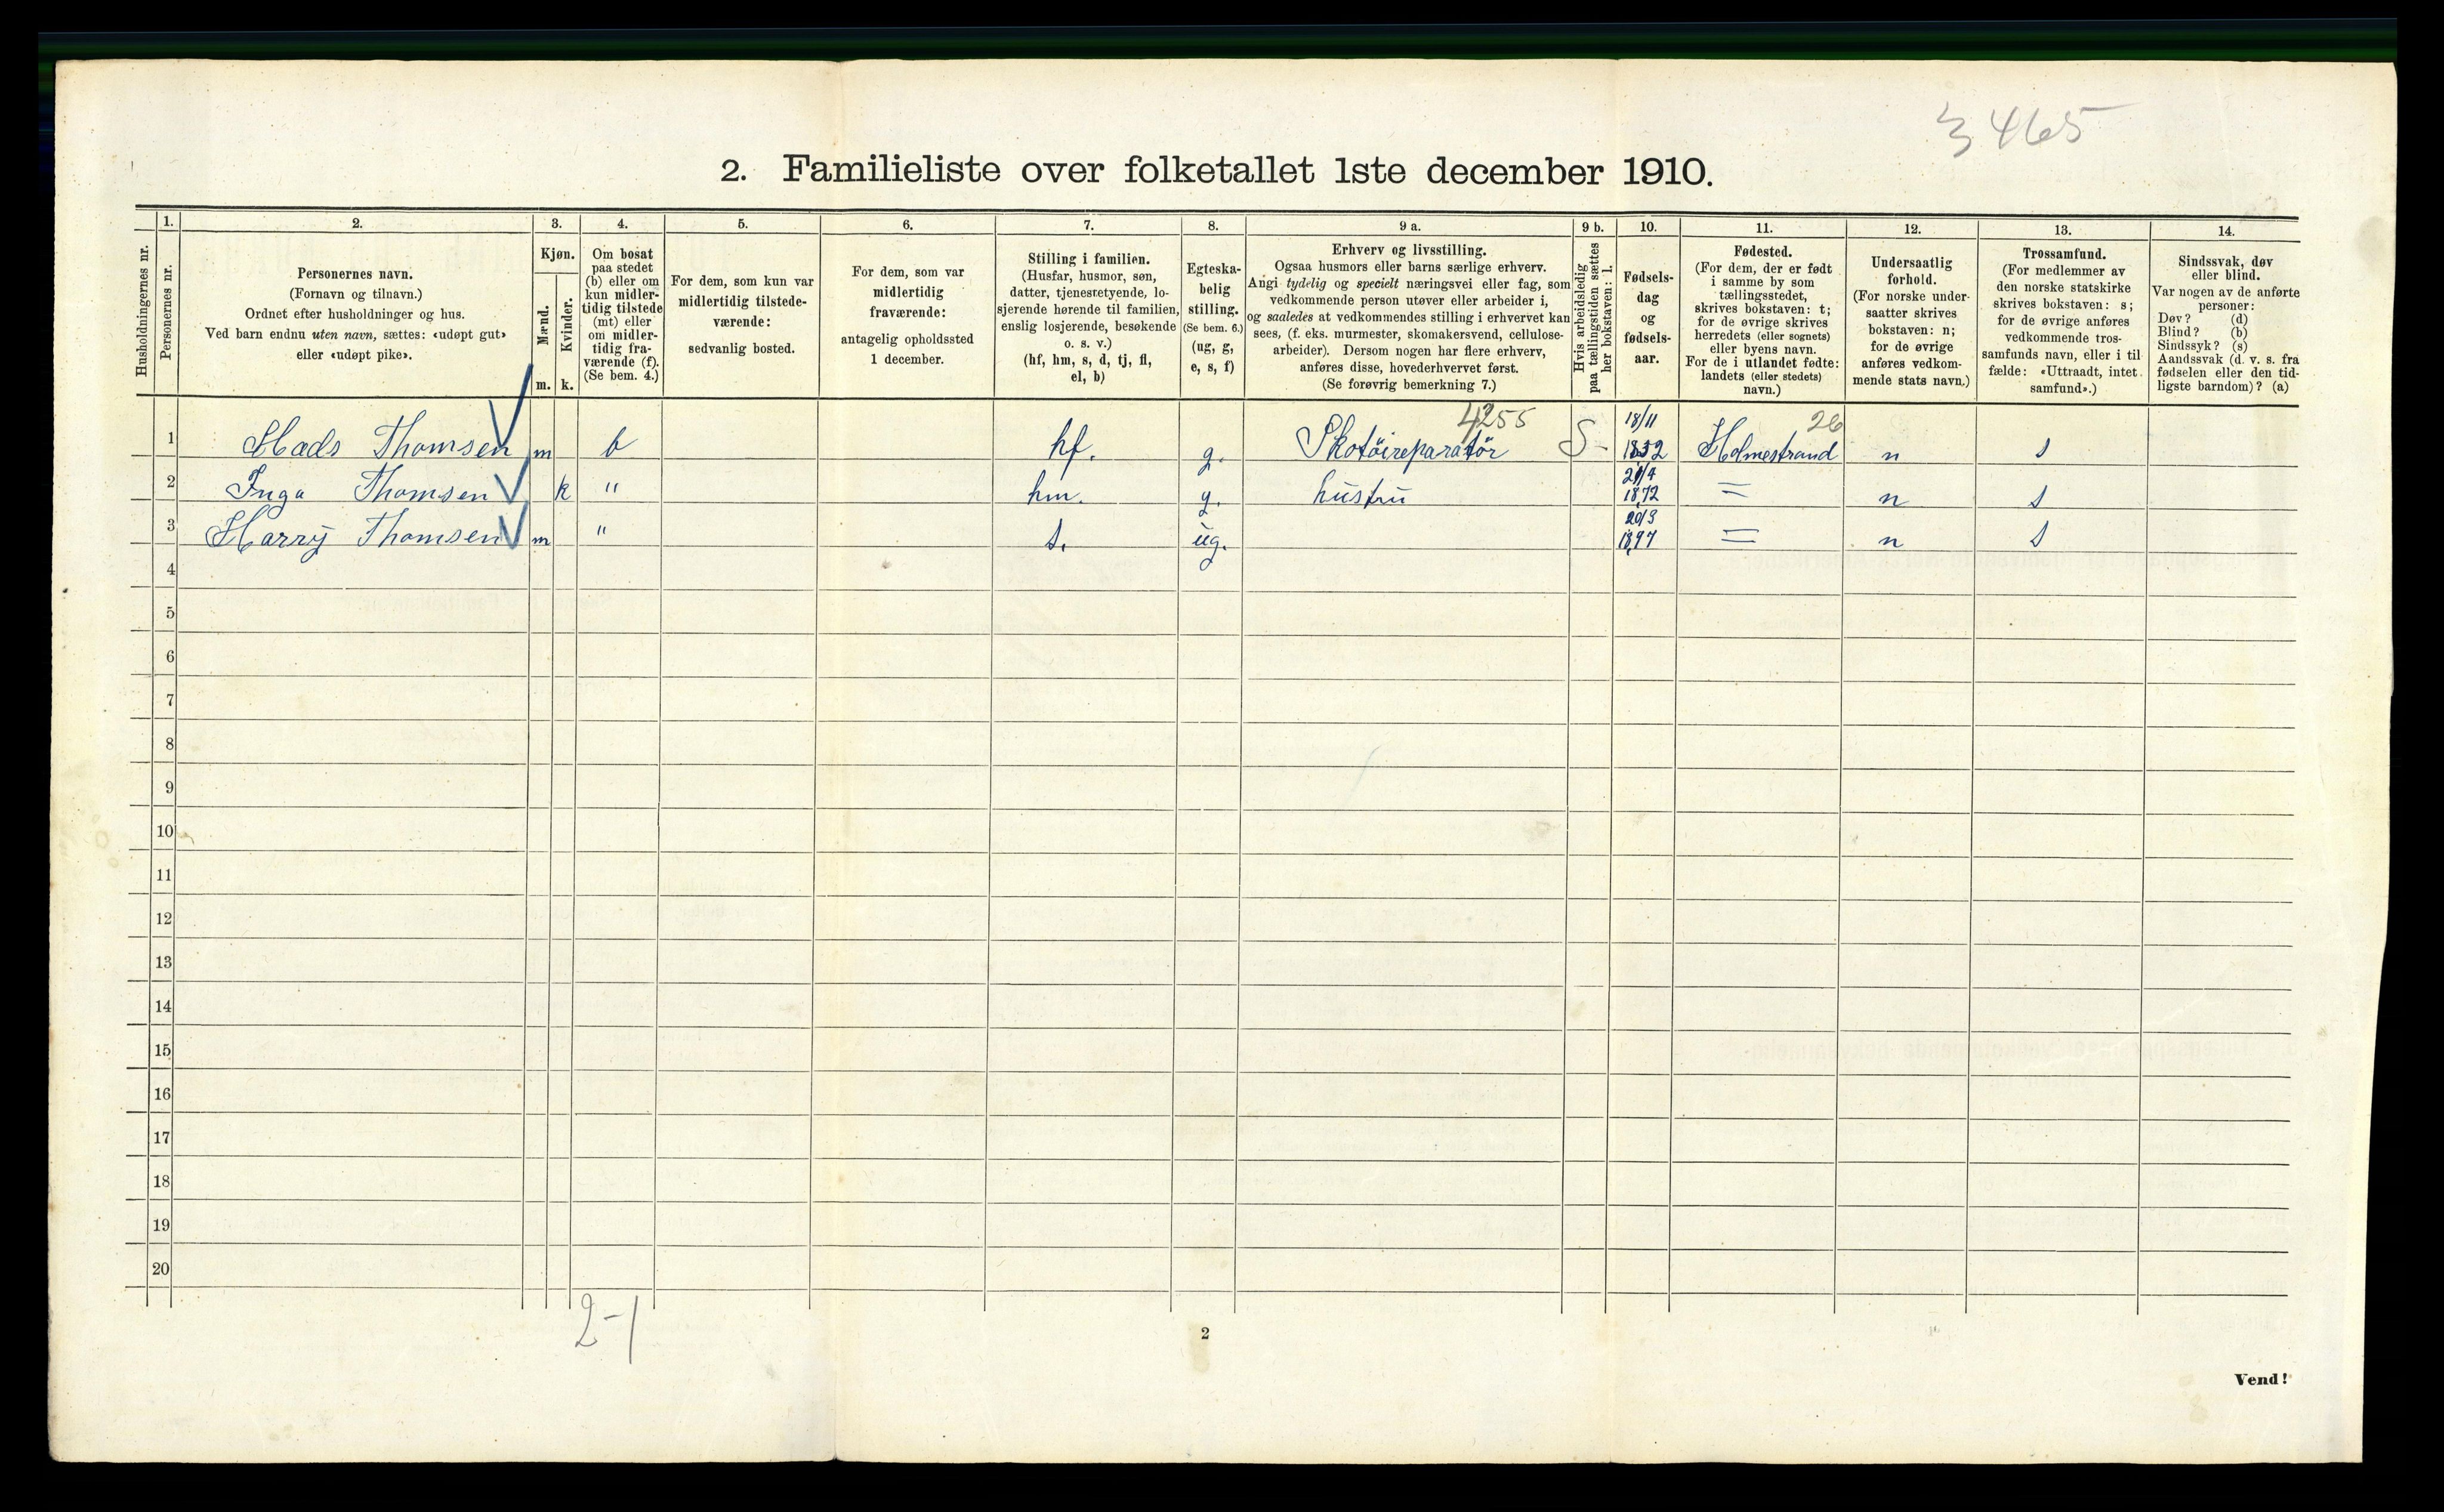 3465
2. Familieliste over folketallet 1ste december 1910.
Husholdningernes nr.
1.
Personernes nr.
2.
Personernes navn.
(Fornavn og tilnavn.)
Ordnet efter husholdninger og hus.
Ved barn endnu uten navn, sættes: «udøpt gut»
eller «udøpt pike».
3.
Kjøn.
Mænd.
Kvinder.
m. k.
4.
Om bosat
paa stedet
(b) eller om
kun midler-
tidig tilstede
(mt) eller
om midler-
tidig fra-
værende (f).
(Se bem. 4.)
5.
For dem, som kun var
midlertidig tilstede-
værende:
sedvanlig bosted.
6.
For dem, som var
midlertidig
fraværende:
antagelig opholdssted
1 december.
7.
Stilling i familien.
(Husfar, husmor, søn,
datter, tjenestetyende, lo-
sjerende hørende til familien,
enslig losjerende, besøkende
o. s. v.)
(hf, hm, s, d, tj, fl,
el, b)
8.
Egteska-
belig
stilling.
(Se bem. 6.)
(ug, g,
e, s, f)
9 a.
Erhverv og livsstilling.
Ogsaa husmors eller barns særlige erhverv.
Angi tydelig og specielt næringsvei eller fag, som
vedkommende person utøver eller arbeider i,
og saaledes at vedkommendes stilling i erhvervet kan
sees, (f. eks. murmester, skomakersvend, cellulose-
arbeider). Dersom nogen har flere erhverv,
anføres disse, hovederhvervet først.
(Se forøvrig bemerkning 7.)
9 b.
Hvis arbeidsledig
paa tællingstiden sættes
her bokstaven: l.
10.
Fødsels-
dag
og
fødsels-
aar.
11.
Fødested.
(For dem, der er født
i samme by som
tællingsstedet,
skrives bokstaven: t;
for de øvrige skrives
herredets (eller sognets)
eller byens navn.
For de i utlandet fødte:
landets (eller stedets)
navn.)
12.
Undersaatlig
forhold.
(For norske under-
saatter skrives
bokstaven: n;
for de øvrige
anføres vedkom-
mende stats navn.)
13.
Trossamfund.
(For medlemmer av
den norske statskirke
skrives bokstaven: s;
for de øvrige anføres
vedkommende tros-
samfunds navn, eller i til-
fælde: «Uttraadt, intet
samfund».)
14.
Sindssvak, døv
eller blind.
Var nogen av de anførte
personer:
Døv? (d)
Blind? (b)
Sindssyk? (s)
Aandssvak (d. v. s. fra
fødselen eller den tid-
ligste barndom)? (a)
4255 18/11 26
1 Mads Thomsen m b hf. g. Skotöireparatör S- Holmestrand n s
2 Inga Thomsen k " hm. g. hustru 1872 = n s
20/3
3 Harry Thomsen m " s. ug. 1897 = n s
4
5
6
7
8
9
10
11
12
13
14
15
16
17
18
19
20
2-1
2
Vend!